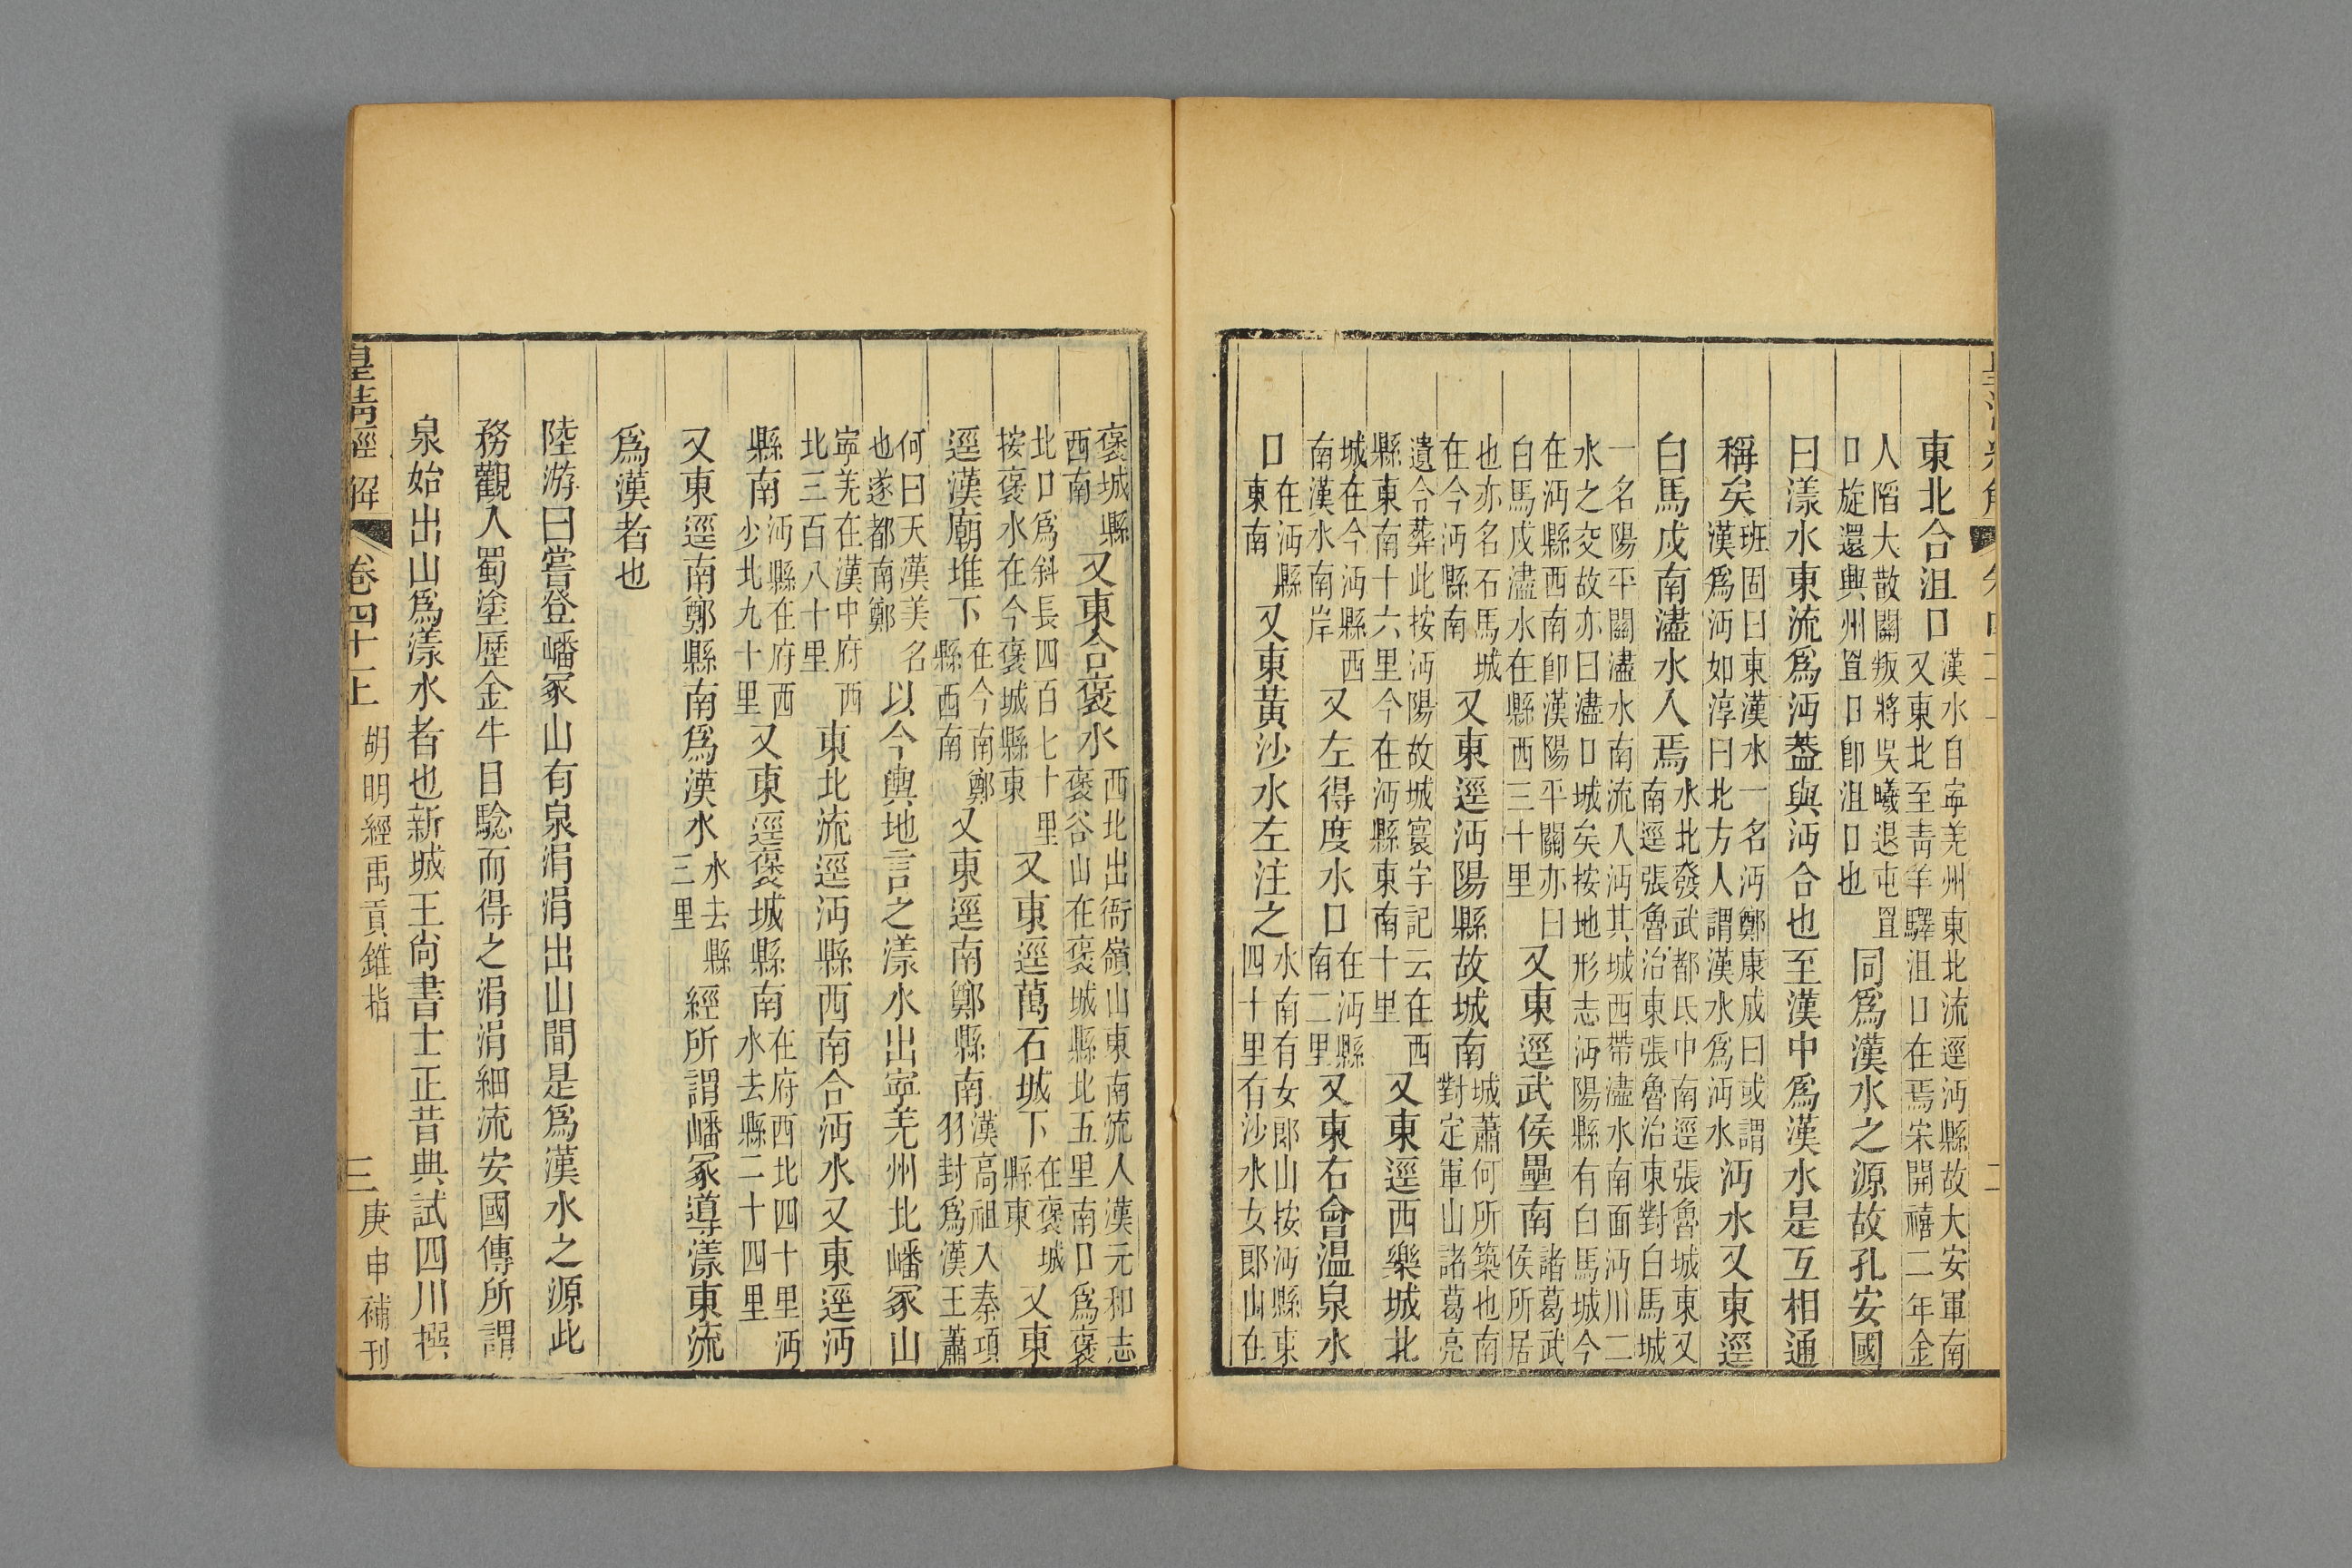 東北合沮口漢水自寧羌州東北流逕沔縣故大安軍南又東北至青羊驛沮口在焉宋開禧二年金
人陷大散關叛將吳曦退屯罝口旋還興州罝口卽沮口也同爲漢水之源故孔安國
曰漾水東流爲沔葢與沔合也至漢中爲漢水是互相通
稱矣班固曰東漢水一名沔鄭康成曰或謂漢爲沔如淳曰北方人謂漢水爲沔水沔水又東逕
白馬戍南濜水入焉水北發武都氐中南逕張魯城東又南逕張魯治東張魯治東對白馬城
一名陽平關濜水南流入沔其城西帶濜水南面沔川二水之交故亦曰濜口城矣按地形志沔陽縣有白馬城今
在沔縣西南卽漢陽平關亦曰白馬戍濜水在縣西三十里又東逕武侯壘南諸葛武侯所居
也亦名石馬城在今沔縣南又東逕沔陽縣故城南城蕭何所築也南對定軍山諸葛亮
遺令葬此按沔陽故城寰宇記云在西縣東南十六里今在沔縣東南十里又東逕西樂城北
城在今沔縣西南漢水南岸又左得度水口在沔縣南二里又東右會温泉水
口在沔縣東南又東黃沙水左注之水南有女郎山按沔縣東四十里有沙水女郎山在
褒城縣西南又東合褒水西北出衙嶺山東南流入漢元和志褒谷山在褒城縣北五里南口爲褒
北口爲斜長四百七十里按褒水在今褒城縣東又東逕萬石城下在褒城縣東又東
逕漢廟堆下在今南鄭縣西南又東逕南鄭縣南漢高祖入秦項羽封爲漢王蕭
何曰天漢美名也遂都南鄭以今輿地言之漾水出寧羌州北嶓冢山
寧羌在漢中府西北三百八十里東北流逕沔縣西南合沔水又東逕沔
縣南沔縣在府西少北九十里又東逕褒城縣南在府西北四十里沔水去縣二十四里
又東逕南鄭縣南爲漢水水去縣三里經所謂嶓冢導漾東流
爲漢者也
陸游曰嘗登嶓冢山有泉涓涓出山間是爲漢水之源此
務觀入蜀塗歷金牛目騐而得之涓涓細流安國傳所謂
泉始出山爲漾水者也新城王尙書士正昔典試四川撰
皇清經解 卷四十二上 胡明經禹貢錐指 三 庚申補刊